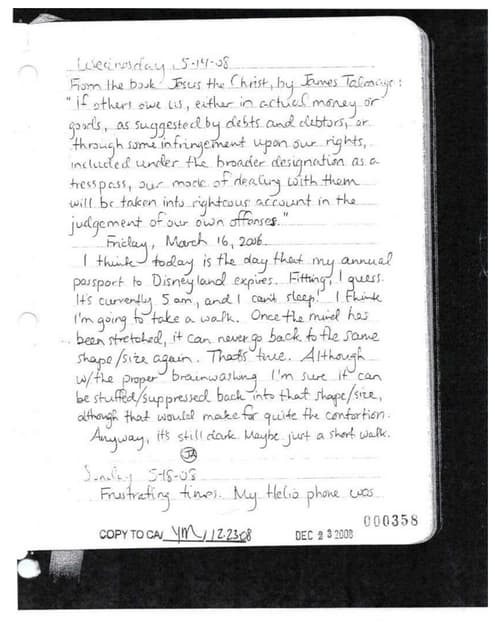 Wednesday, 5-14-08
From the book Jesus the Christ, by James Talmage:
"If others owe us, either in actual money or
goods, as suggested by debts and debtors, or
through some infringement upon our rights,
included under the broader designation as a
tresspass, our mode of dealing with them
will be taken into righteous account in the
judgement of our own offenses."
Friday, March 16, 2006
I think today is the day that my annual
passport to Disneyland expires. Fitting, I guess.
It's currently 5 am, and I can't sleep! I think
I'm going to take a walk. Once the mind has
been stretched, it can never go back to the same
shape/size again. That's true. Although
w/the proper brainwashing I'm sure it can
be stuffed/suppressed back into that shape/size,
although that would make for quite the contortion.
Anyway, it's still dark. Maybe just a short walk.
JA
Sunday 5-18-08
Frustrating times. My Helio phone was
000358
COPY TO CA/ YM / 12.23.08 DEC 23 2008